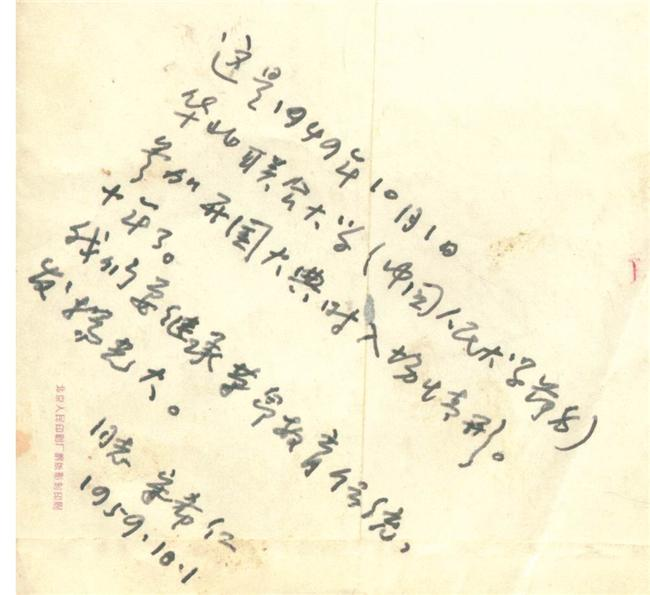 这是1949年10月1日
华北联合大学(中国人民大学前身)
参加开国大典时入场情形。
十年了。
我们要继承革命教育传统,
发扬光大。
宋希仁
1959.10.1
北京人民印刷厂